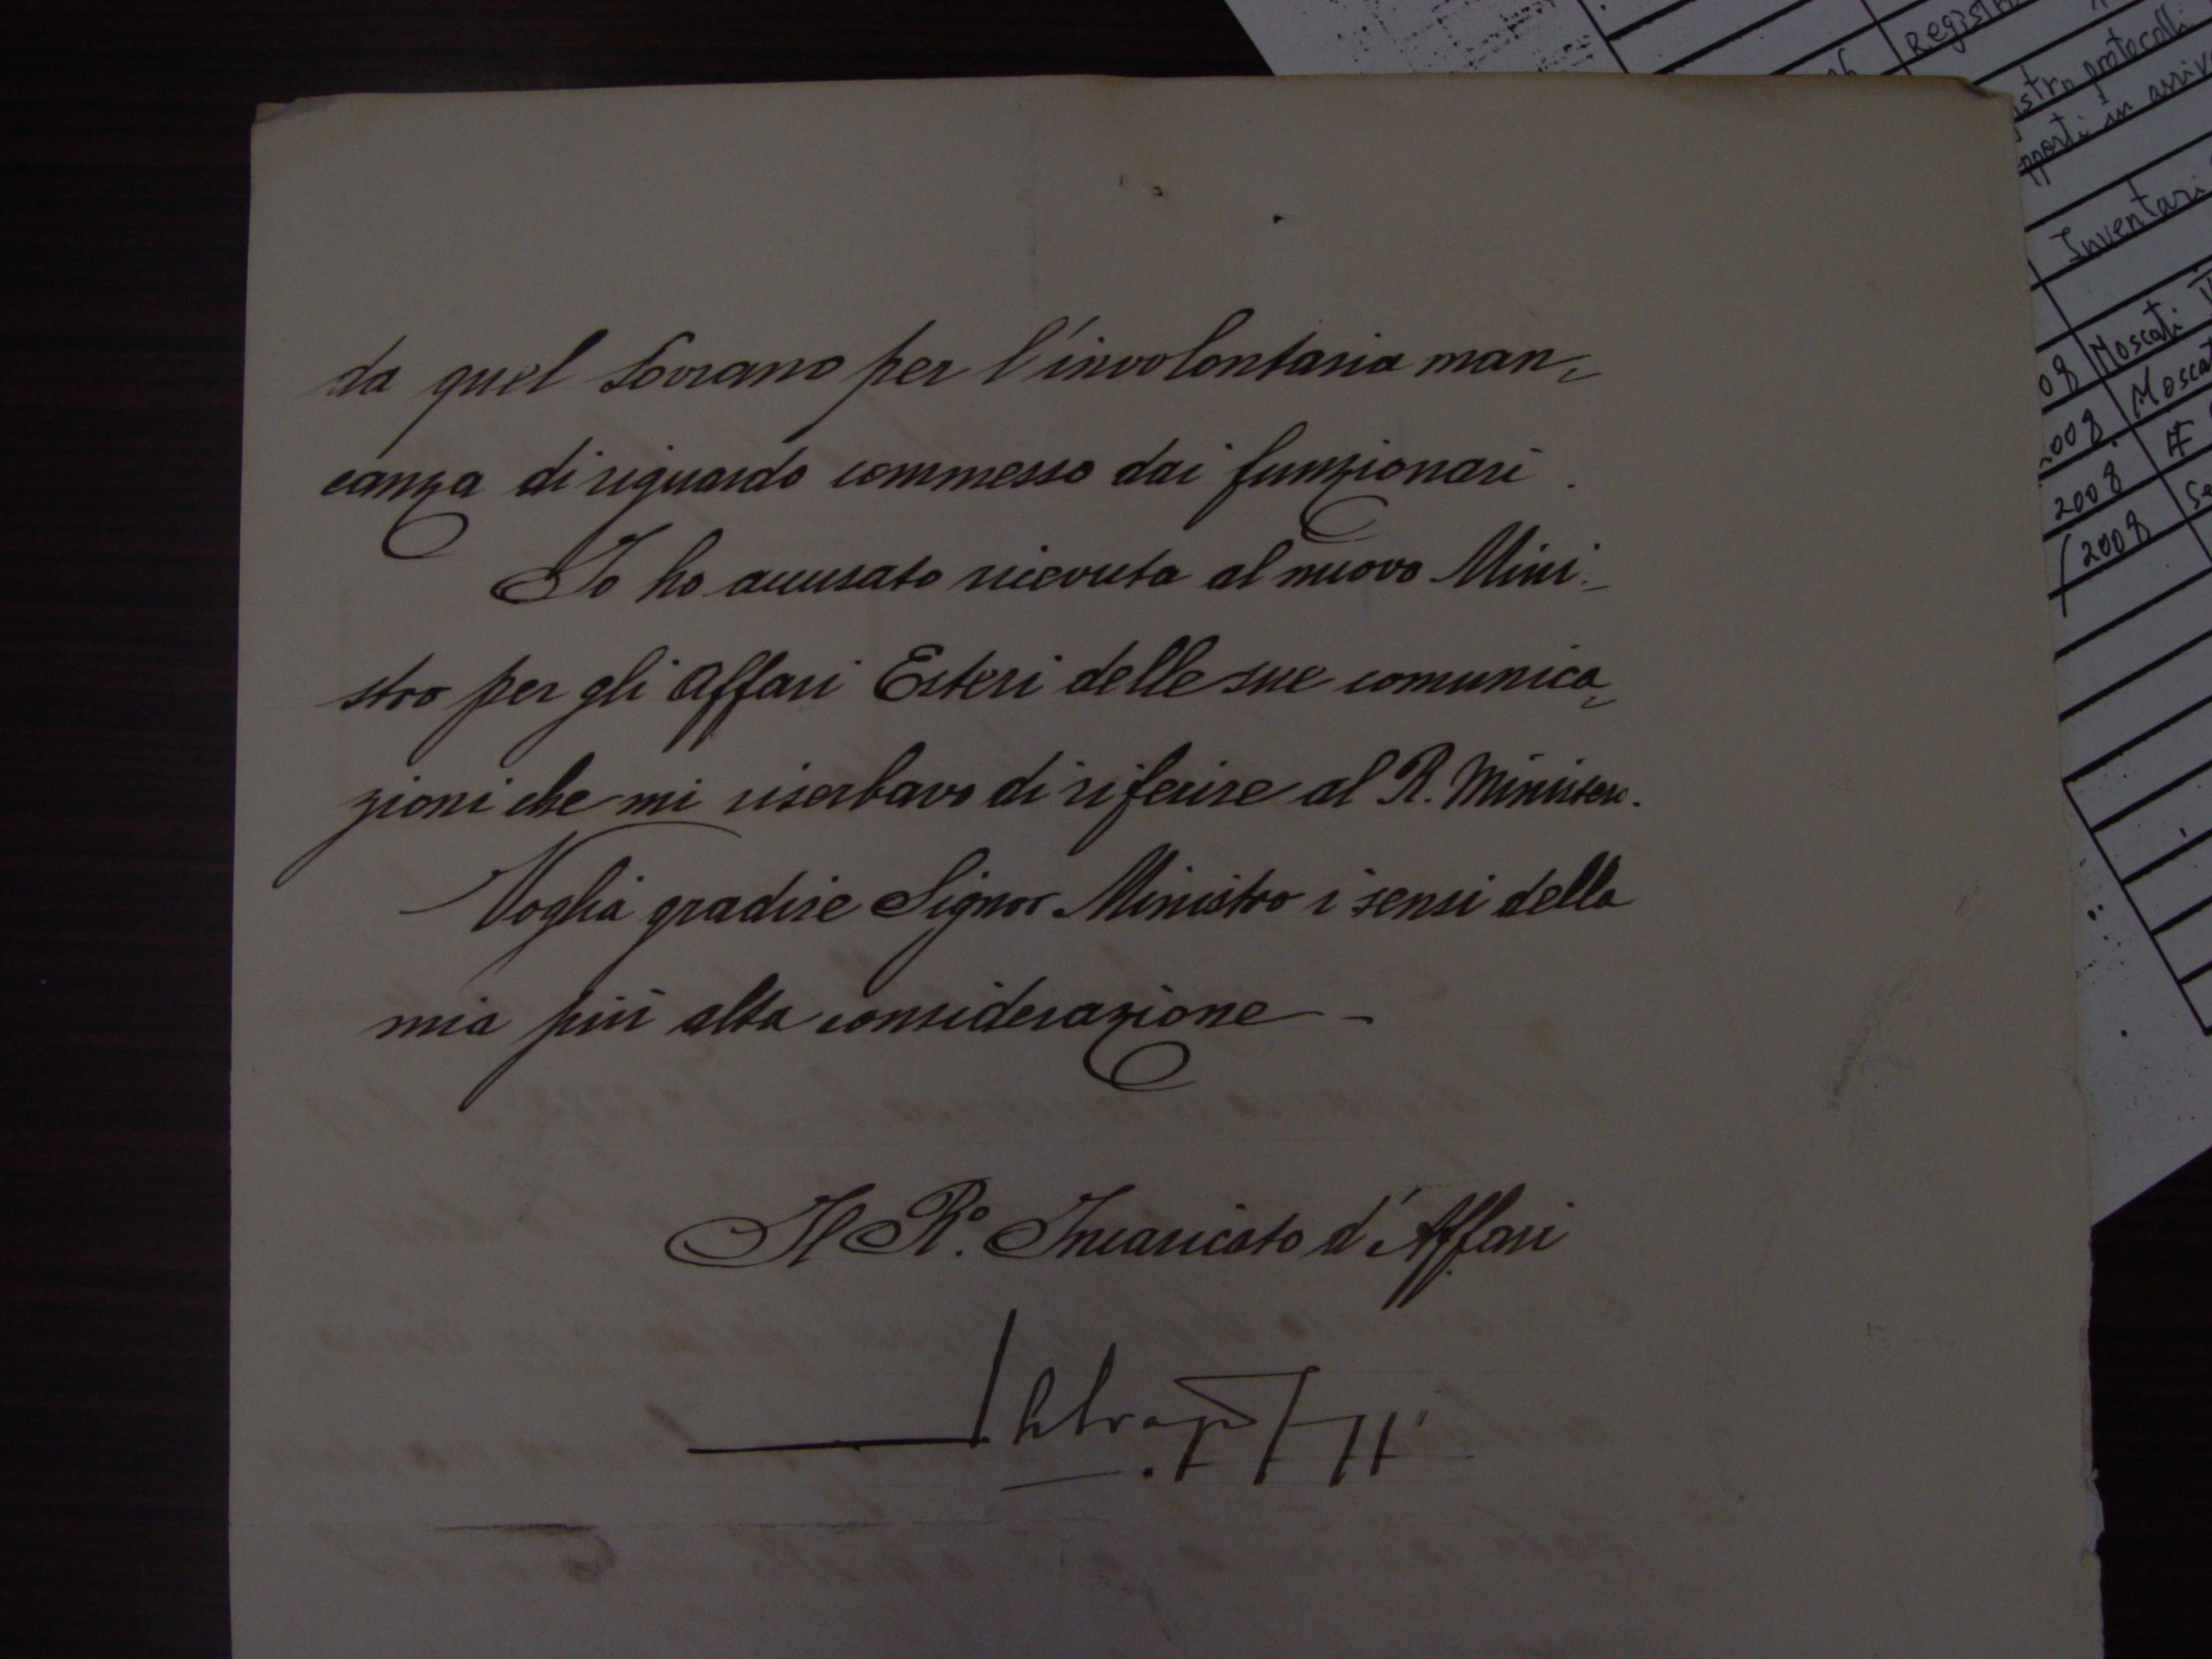 da quel Sovrano per l'involontaria man=
canza di riguardo commesso dai funzionari.
Io ho accusato ricevuta al nuovo Mini=
stro per gli Affari Esteri delle sue comunica=
zioni che mi riserbavo di riferire al R. Ministero.
Voglia gradire Signor Ministro i sensi della
mia più alta considerazione -
Il R.° Incaricato d'Affari
Registro
protocolli
in arrivo
Inventari
Moscati
2008
2008
(2008